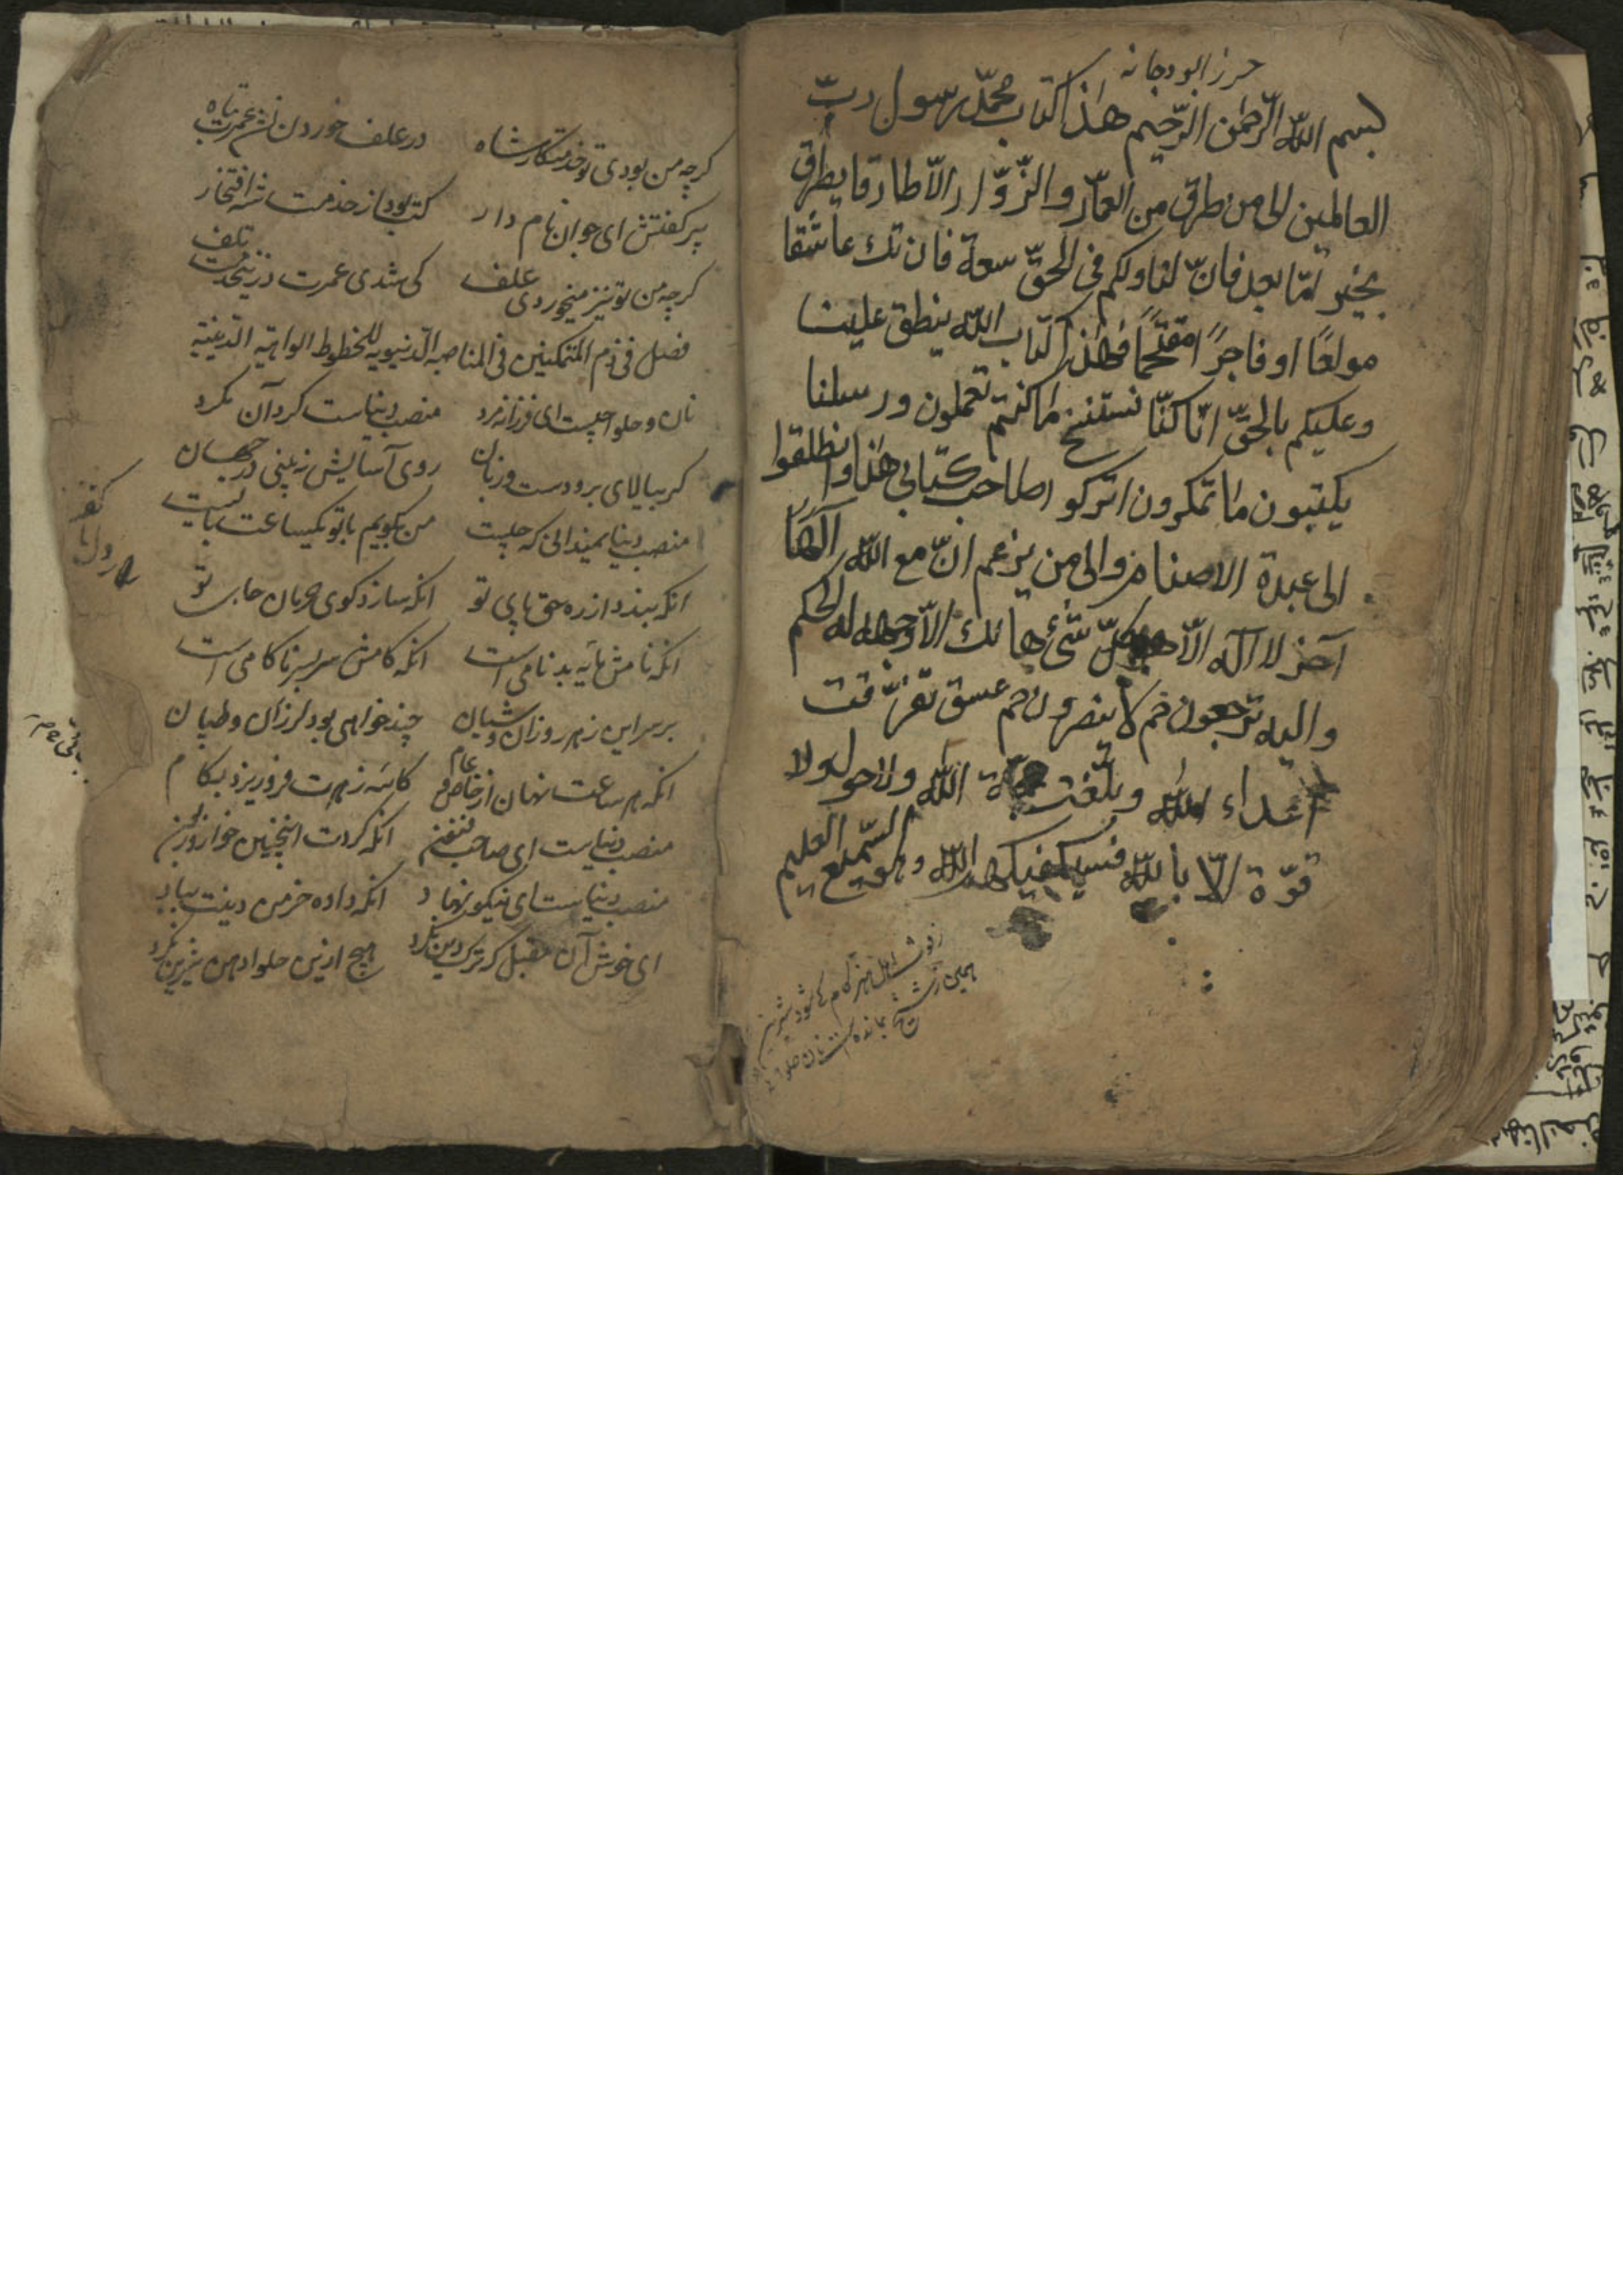 حرز ابو دجانه
بسم الله الرّحمن الرّحيم هذا كتاب محمّد رسول ربّ
العالمين الى من طرق من العمّار والزّوّار الّا طارقا يطرق
بخير امّا بعد فانّ لنا ولكم فى الحقّ سعة فان تك عاشقا
مولعًا او فاجرًا مقتحمًا فهذا كتاب الله ينطق علينا
وعليكم بالحقّ انّا كنّا نستنسخ ما كنتم تعملون ورسلنا
يكتبون ما تمكرون اتركو اصاحب كتابي هذا وانطلقوا
الى عبدة الاصنام والى من يزعم انّ مع الله الٰهًا
آخر لا اله الّا هو كلّ شئ هالك الّا وجهه له الحكم
واليه ترجعون حم لا ينصرون حم عسق تفرّقت
اعداء الله وبلغت حجة الله ولا حول ولا
قوّة الّا بالله فسيكفيكهم الله وهو السّميع العليم
كرچه من بودى تو خدمتكار شاه در علف خوردن نشد عمرت تباه
پير كفتش اى جوان نام دار كت بود از خدمت شه افتخار
كرچه من تو نيز ميخوردى علف كى شدى عمرت درين خدمت تلف
فصل فى ذم المتمكنين فى المناصب الدنيويه للخطوط الواهيه الدنيّه
نان و حلوا چيست اى فرزانه مرد منصب دنياست كرد آن مكرد
كر بيالاى برو دست و زبان روى آسايش نبينى در جهان
منصب دنيا نميدانى كه چيست من بكويم با تو يكساعت بايست
انكه بندد از ره حق پاى تو انكه سازد كوى حرمان جاى تو
انكه نامش مايه بدنامى است انكه كامش سربسر ناكامى است
بر سر اين زهر روزان و شبان چند خواهى بود لرزان و طپان
انكه هر ساعت نهان از خاص و عام كاسه زهرت فرو ريزد بكام
منصب دنياست اى صاحب فنن انكه كردت اينچنين خوار و حزين
منصب دنياست اى نيكو نهاد انكه داده خرمن دينت بباد
اى خوش آن مقبل كه ترك دين نكرد هيچ ازين حلوا دهن شيرين نكرد